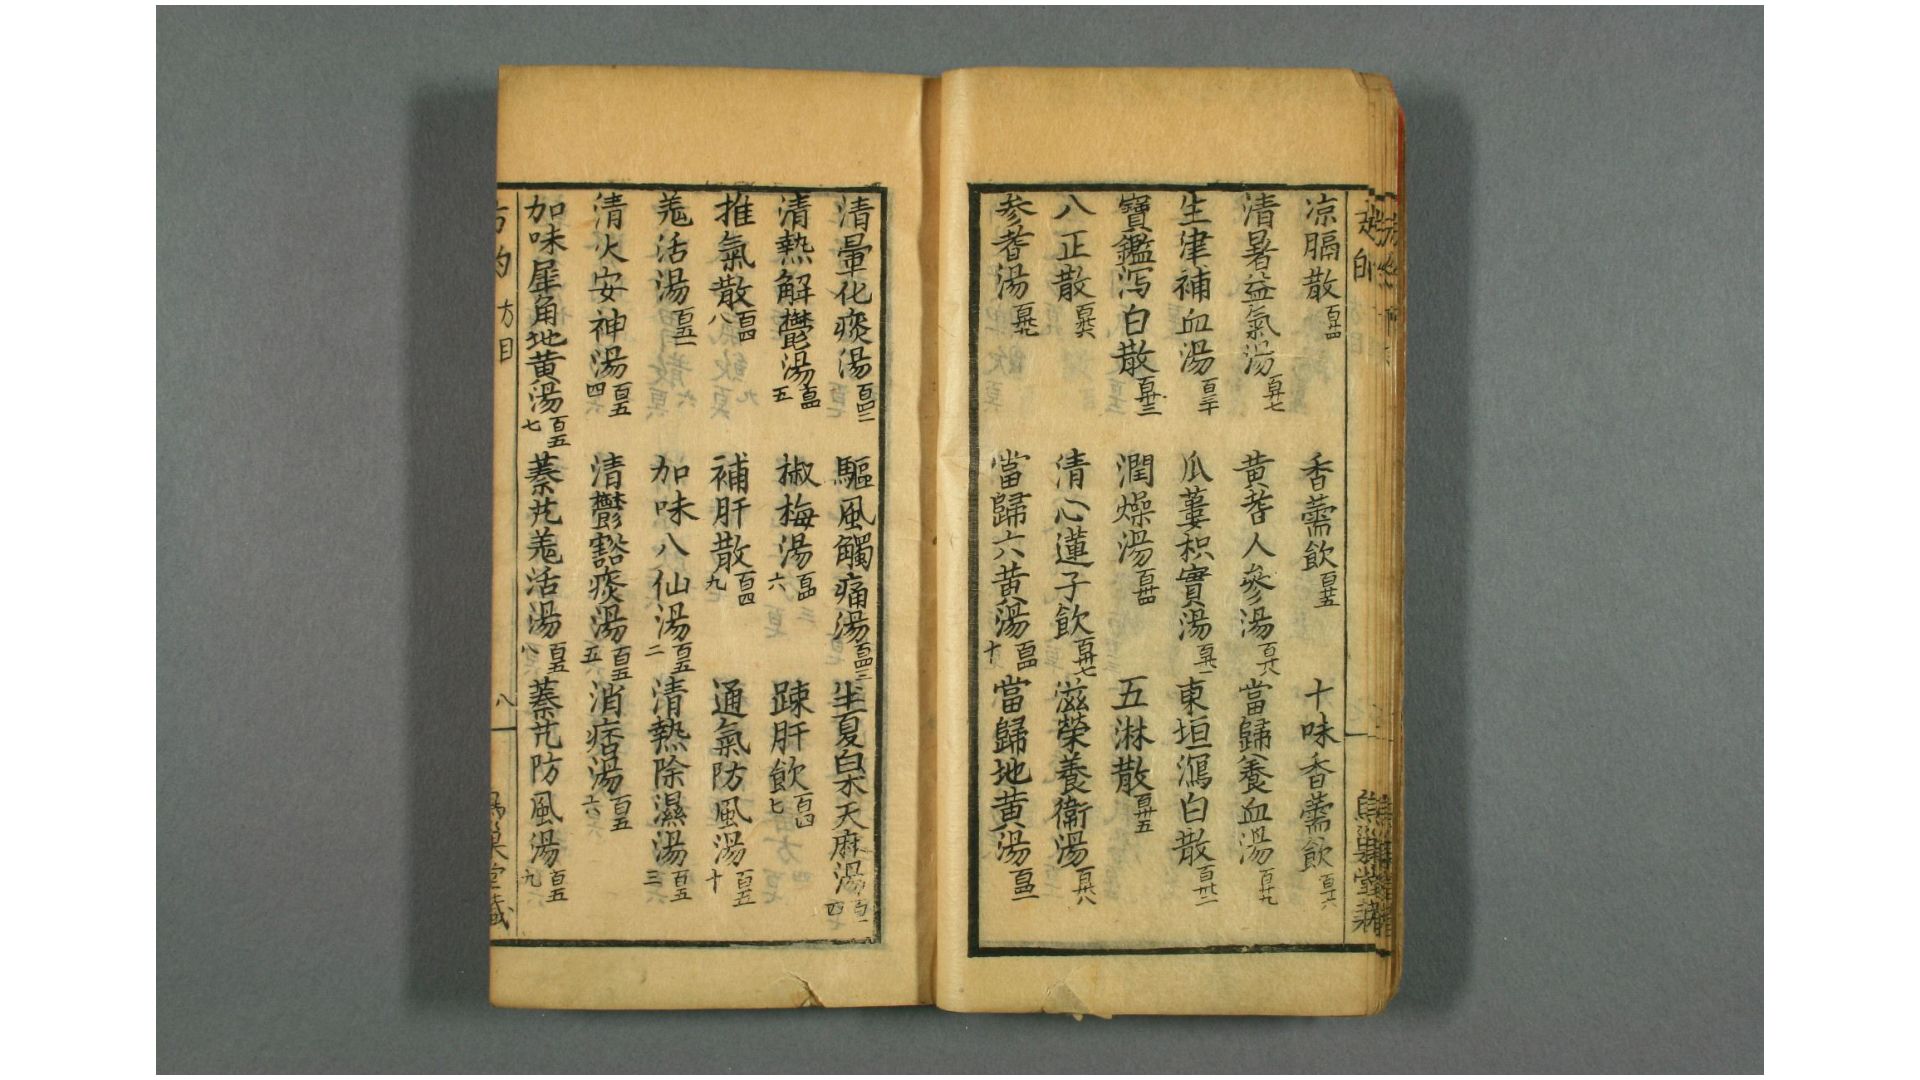 凉膈散百廿四 香薷飲百廿五 十味香薷飲百廿六
清暑益氣湯百廿七 黃茋人參湯百廿八 當歸養血湯百廿九
生津補血湯百三十 瓜蔞枳實湯百卅一 東垣瀉白散百卅二
寶鑑泻白散百卅三 潤燥湯百卅四 五淋散百卅五
八正散百卅六 清心蓮子飲百卅七 滋榮養衛湯百卅八
参茋湯百卅九 當歸六黃湯百四十 當歸地黃湯百四一
清暈化痰湯百四二 驅風觸痛湯百四三 半夏白朮天麻湯百四四
清熱解鬱湯百四五 椒梅湯百四六 踈肝飲百四七
推氣散百四八 補肝散百四九 通氣防風湯百五十
羗活湯百五一 加味八仙湯百五二 清熱除濕湯百五三
清火安神湯百五四 清鬱豁痰湯百五五 消痞湯百五六
加味犀角地黃湯百五七 蓁艽羗活湯百五八 蓁艽防風湯百五九
方目 八